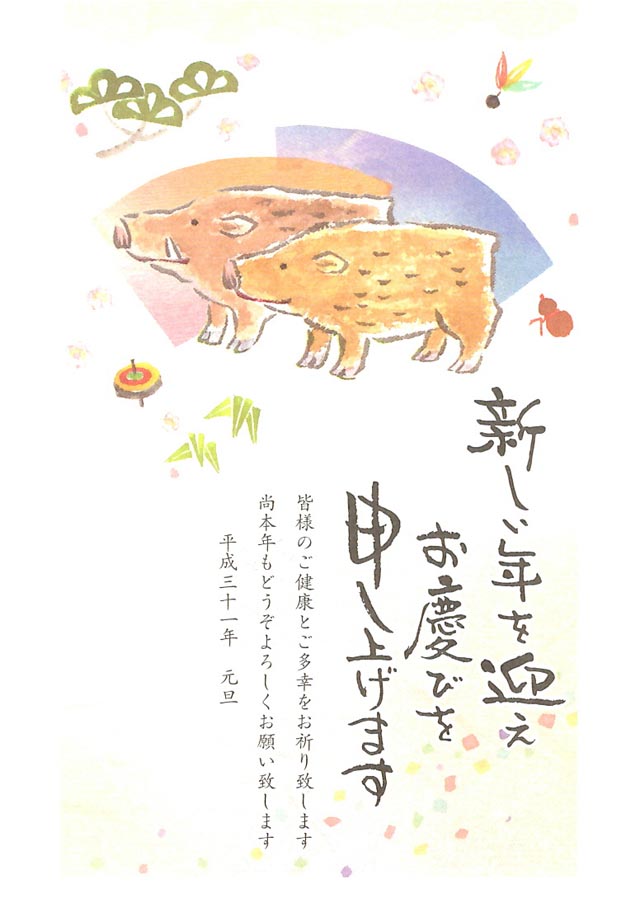 新しい年を迎え
お慶びを
申し上げます
皆様のご健康とご多幸をお祈り致します
尚本年もどうぞよろしくお願い致します
平成三十一年 元旦